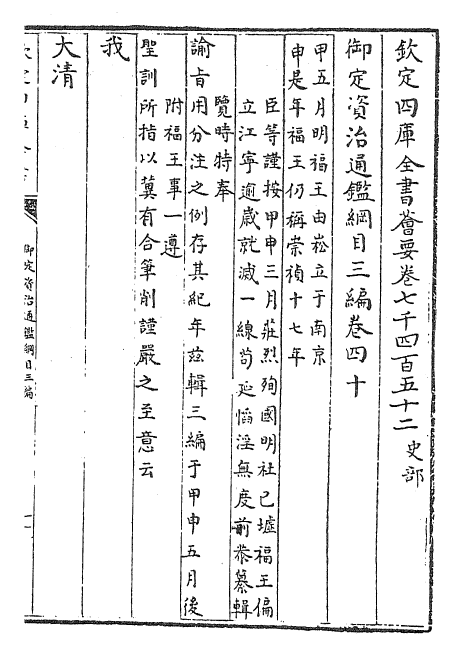 欽定四庫全書薈要卷七千四百五十二 史部
御定資治通鑑綱目三編卷四十
甲申五月明福王由崧立于南京
申是年福王仍稱崇禎十七年
臣等謹按甲申三月莊烈殉國明社已墟福王偏
立江寧逾歲就滅一線苟延慆淫無度前恭纂輯
覽時特奉
諭旨用分注之例存其紀年兹輯三編于甲申五月後
附福王事一遵
聖訓所指以冀有合筆削謹嚴之至意云
我
大清
御定資治通鑑綱目三編